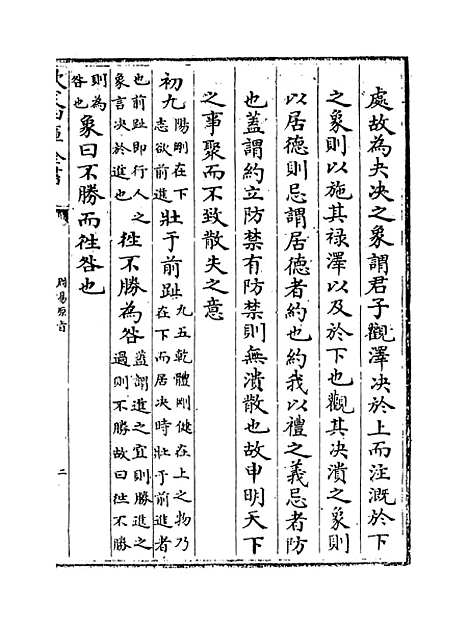 處故為夬決之象謂君子觀澤決於上而注溉於下
之象則以施其祿澤以及於下也觀其決潰之象則
以居德則忌謂居德者約也約我以禮之義忌者防
也蓋謂約立防禁有防禁則無潰散也故申明天下
之事聚而不致散失之意
初九陽剛在下志欲前進壯于前趾九五乾體剛健在上之物乃在下而居決時壯于前進者
也前趾即行人之象言決於進也徃不勝為咎蓋謂進之宜則勝進之過則不勝故曰徃不勝
則為咎也象曰不勝而徃咎也
周易原旨
二